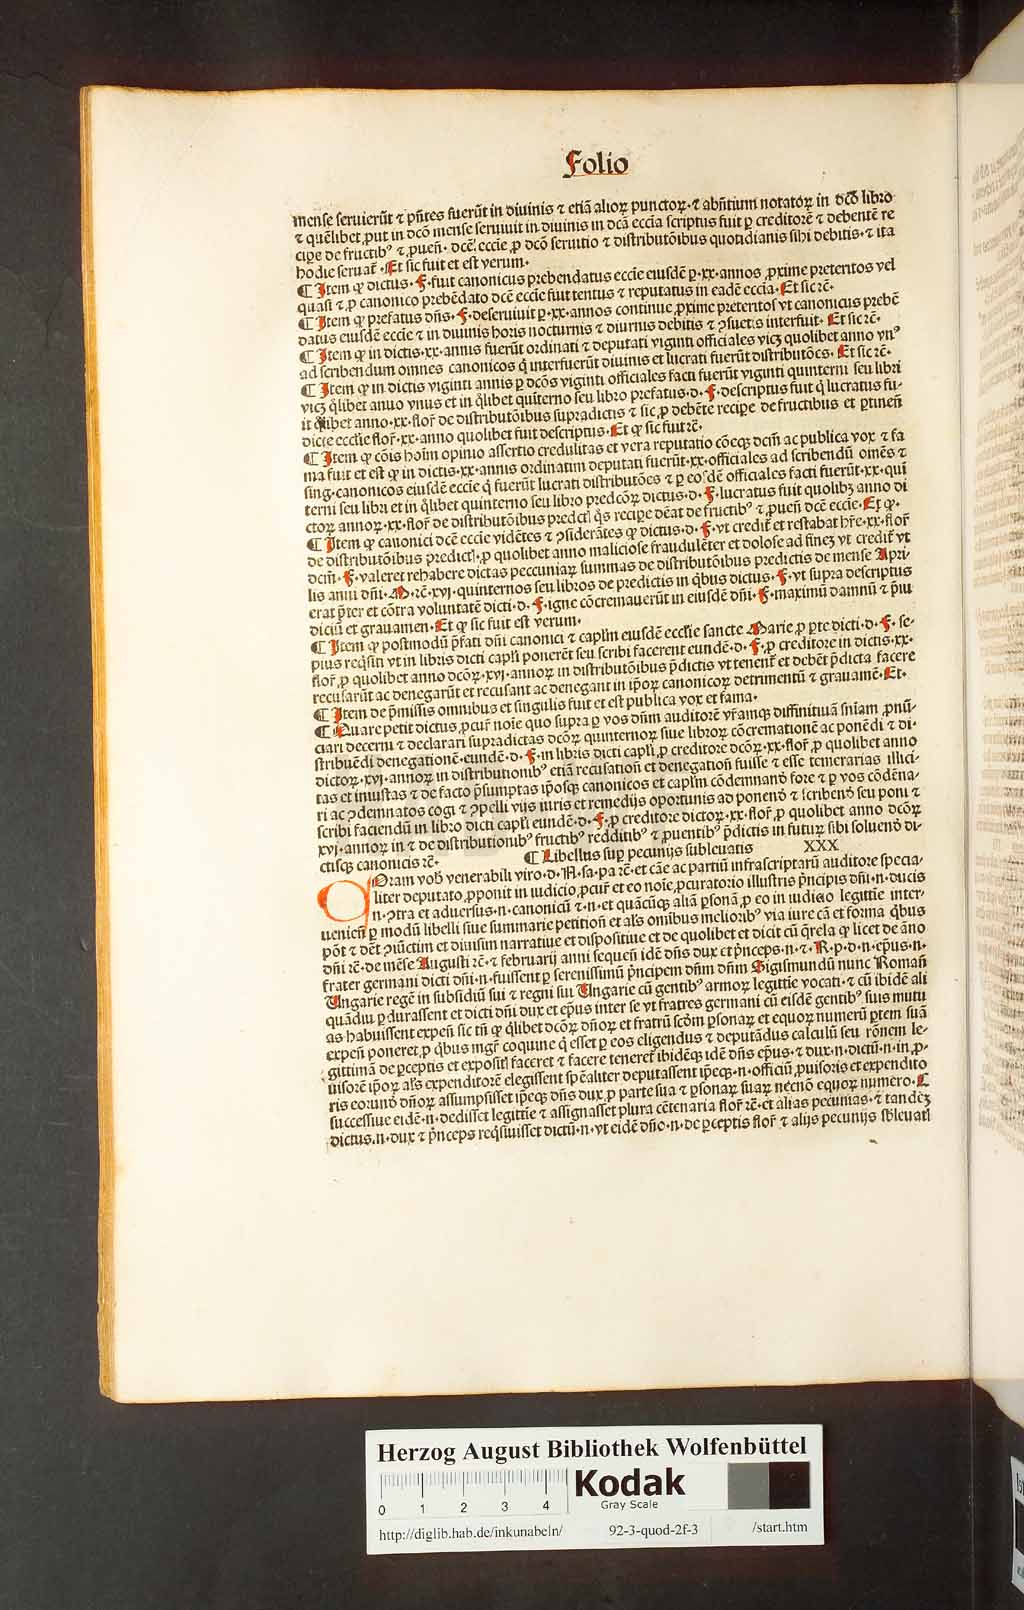 Folio
mense seruierūt ⁊ pñtes fuerūt in diuinis ⁊ etiā alioꝝ punctoꝝ·⁊ abñtium notatoꝝ in dcō libro
⁊ quēlibet ꝓut in dcō mense seruiuit in diuinis in dcā eccīa scriptus fuit ꝑ creditorē ⁊ debentē re
cipe de fructibꝰ ⁊ ꝓueñ· dcē eccīe ꝓ dcō seruitio ⁊ distributōibus quotidianis sibi debitis·⁊ ita
hodie seruat̄·Et sic fuit et est verum·
¶ Item ꝙ dictus·F·fuit canonicus prebendatus eccīe eiusdē ꝑ·xx·annos ꝓxime preteritos vel
quasi ⁊ ꝓ canonico prebēdato dcē eccīe fuit tentus ⁊ reputatus in eadē eccīa·Et sic rē·
¶ Item ꝙ prefatus dñs·F·deseruiuit ꝑ·xx·annos continue ꝓxime preteritos vt canonicus prebē
datus eiusdē eccīe ⁊ in diuinis horis nocturnis ⁊ diurnis debitis ⁊ ꝯsuetis interfuit·Et sic rē·
¶ Item ꝙ in dictis·xx·annis fuerūt ordinati ⁊ deputati viginti officiales vicꝫ quolibet anno vnꝰ
ad scribendum omnes canonicos q̄ interfuerūt diuinis et lucrati fuerūt distributōes·Et sic rē·
¶ Item ꝙ in dictis viginti annis ꝑ dcōs viginti officiales facti fuerūt viginti quinterni seu libri
vicꝫ q̄libet anuo vnus et in q̄libet quīterno seu libro prefatus·d·F·descriptus fuit q̄ lucratus fu-
it q̄libet anno·xx·flor̄ de distributōibus supradictis ⁊ sic ꝓ debēte recipe de fructibus et ꝑtineñ
dicte eccīe flor̄·xx·anno quolibet fuit descriptus·Et ꝙ sic fuit rē·
¶ Item ꝙ cōis hoīm opinio assertio credulitas et vera reputatio cōeqꝫ dcm̄ ac publica vox ⁊ fa
ma fuit et est ꝙ in dictis·xx·annis ordinatim deputati fuerūt·xx·officiales ad scribendū oīnēs ⁊
sing·canonicos eiusdē eccīe q̄ fuerūt lucrati distributōes ⁊ ꝑ eosdē officiales facti fuerūt·xx·qui
terni seu libri et in q̄libet quinterno seu libro predcōꝝ dictus·d·F·lucratus fuit quolibꝫ anno di
ctoꝝ annoꝝ·xx·flor̄ de distributōibus predict̄ q̄s recipe dēat de fructibꝰ ⁊ ꝓueñ dcē eccīe·Et ꝙ·
¶ Item ꝙ canonici dcē eccīe vidētes ⁊ ꝯsiderātes ꝙ dictus·d·F·vt credit̄ et restabat hr̄e·xx·flor̄
de distributōibus predict̄·ꝓ quolibet anno maliciose fraudulēter et dolose ad finēꝫ vt credit̄ vt
dcm̄·F·valeret rehabere dictas peccuniaꝝ summas de distributōibus predictis de mense Apri-
lis anni dñi·M·rē·xvj·quinternos seu libros de predictis in q̄bus dictus·F·vt supra descriptus
erat p̄ter et cōtra voluntatē dicti·d·F·igne cōcremauerūt in eiusdē dñi·F·maximū damnū ⁊ p̄iu
diciū et grauamen·Et ꝙ sic fuit est verum·
¶ Item ꝙ postmodū p̄fati dñi canonici ⁊ capl̄m eiusdē eccl̄ie sancte Marie ꝓ ꝑte dicti·d·F·se-
pius req̄siti vt in libris dicti capl̄i ponerēt seu scribi facerent eundē·d·F·ꝓ creditore in dictis·xx·
flor̄·ꝓ quolibet anno dcōꝝ·xvj·annoꝝ in distributōibus p̄dictis vt tenent̄ et debēt p̄dicta facere
recusarūt ac denegarūt et recusant ac denegant in ip̄oꝝ canonicoꝝ detrimentū ⁊ grauamē·Et·
¶ Item de p̄missis omnibus et singulis fuit et est publica vox et fama·
¶ Quare petit dictus ꝓcur̄ noīe quo supra ꝑ vos dñm auditorē vr̄amqꝫ diffinitiuā sn̄iam ꝓnū-
ciari decerni ⁊ declarari supradictas dcōꝝ quinternoꝝ siue libroꝝ cōcremationē ac ponēdi ⁊ di-
stribuēdi denegationē·eundē·d·F·in libris dicti capl̄i ꝓ creditore dcōꝝ·xx·flor̄·ꝓ quolibet anno
dictoꝝ·xvj·annoꝝ in distributionibꝰ etiā recusationē et denegationē fuisse ⁊ esse temerarias illici-
tas et iniustas ⁊ de facto p̄sumptas ip̄osqꝫ canonicos ⁊ capl̄m cōdemnandͦ fore ⁊ ꝑ vos cōdēna-
ri ac ꝯdemnatos cogi ⁊ ꝯpelli viis iuris et remedijs oportunis ad ponendͦ ⁊ scribendͦ seu poni ⁊
scribi faciendū in libro dicti capl̄i eundē·d·F·ꝓ creditore dictoꝝ·xx·flor̄·ꝓ quolibet anno dcōꝝ
xvj·annoꝝ in ⁊ de distributionibꝰ fructibꝰ redditibꝰ ⁊ ꝓuentibꝰ p̄dictis in futuꝝ sibi soluendͦ di-
ctisqꝫ canonicis rē·
¶ Libellus suꝑ pecunijs subleuatis XXX
COram vob̄ venerabili viro·d·N·sa·pa·rē·et cāe ac partiū infrascriptarū auditore specia-
liter deputato ꝓponit in iudicio ꝓcur̄ et eo noīe ꝓcuratorio illustris p̄ncipis dñi·n·ducis
n·ꝯtra et aduersus·n·canonicū ⁊·n·et quācūqꝫ aliā ꝑsonā ꝓ eo in iudicio legittie inter-
ueniēn ꝑ modū libelli siue summarie petitionī et al̄s omibus melioribꝰ via iure cā et forma q̄bus
pōt ⁊ dēt ꝯiūctim et diuisim narratiue et dispositiue et de quolibet et dicit cū q̄rela ꝙ licet de āno
dñi rē·de mēse Augusti rē·⁊ februarij anni sequeñ idē dñs dux et p̄nceps·n·⁊·R·p·d·n·ep̄us·n·
frater germani dicti dñi·n·fuissent ꝑ serenissimū p̄ncipem dñm dñm Sigismundū nunc Romañ
Ungarie regē in subsidiū sui ⁊ regni sui Ungarie cū gentibꝰ armoꝝ legittie vocati·⁊ cū ibidē ali
quādiu ꝑdurassent et dicti dñi dux et ep̄us inter se vt fratres germani cū eisdē gentibꝰ suis mutu
as habuissent expeñ sic tñ ꝙ q̄libet dcōꝝ dñoꝝ et fratrū scd̄m ꝑsonaꝝ et equoꝝ numerū ꝑtem suā
expeñ poneret ꝓ q̄bus mgr̄ coquine q̄ esset ꝑ eos eligendus ⁊ deputādus calculū seu rōnem le-
gittimā de ꝑceptis et exposit̄ faceret ⁊ facere teneret̄ ibidēqꝫ idē dñs ep̄us·⁊ dux·n·dictū·n·in ꝓ-
uisorē ip̄oꝝ al̄s expenditorē elegissent sp̄ēaliter deputassent ip̄eqꝫ·n·officiū ꝓuisoris et expendito
ris eorundͦ dñoꝝ assumpsisset ip̄eqꝫ dñs dux ꝓ parte sua ⁊ ꝑsonaꝝ suaꝝ necnō equoꝝ numero·E
successiue eidē·n·dedisset legittie ⁊ assignasset plura cētenaria flor̄ rē·et alias pecunias·⁊ tandēꝫ
dictus·n·dux ⁊ p̄nceps req̄siuisset dictū·n·vt eidē dño·n·de ꝑceptis flor̄ ⁊ alijs pecunijs sb̄leuat̄
Herzog August Bibliothek Wolfenbüttel
Kodak
Gray Scale
0 1 2 3 4
http://diglib.hab.de/inkunabeln/ 92-3-quod-2f-3 /start.htm